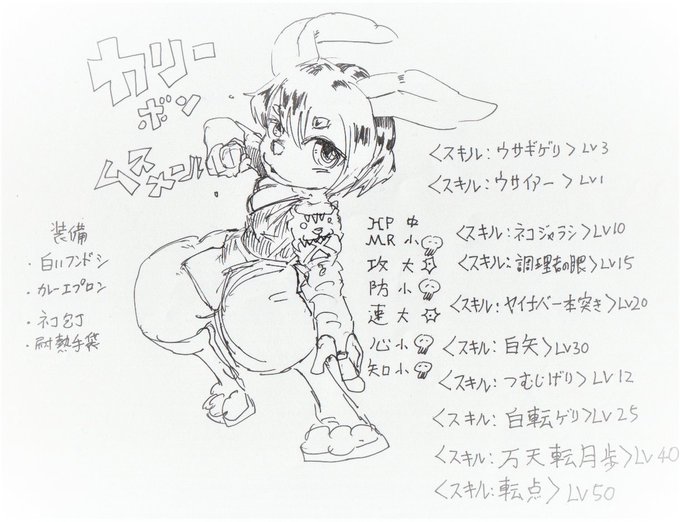 カリー
ボン
ムスメン
装備
・白いフンドシ
・カレーエプロン
・ネコ包丁
・耐熱手袋
HP 中
MR 小
攻 大
防 小
速 大
心 小
知 小
<スキル:ウサギゲリ>LV3
<スキル:ウサイアー>LV1
<スキル:ネコジャラシ>LV10
<スキル:調理者の眼>LV15
<スキル:ヤイナバー本突き>LV20
<スキル:白矢>LV30
<スキル:つむじげり>LV12
<スキル:白転ゲリ>LV25
<スキル:万天転月歩>LV40
<スキル:転点>LV50